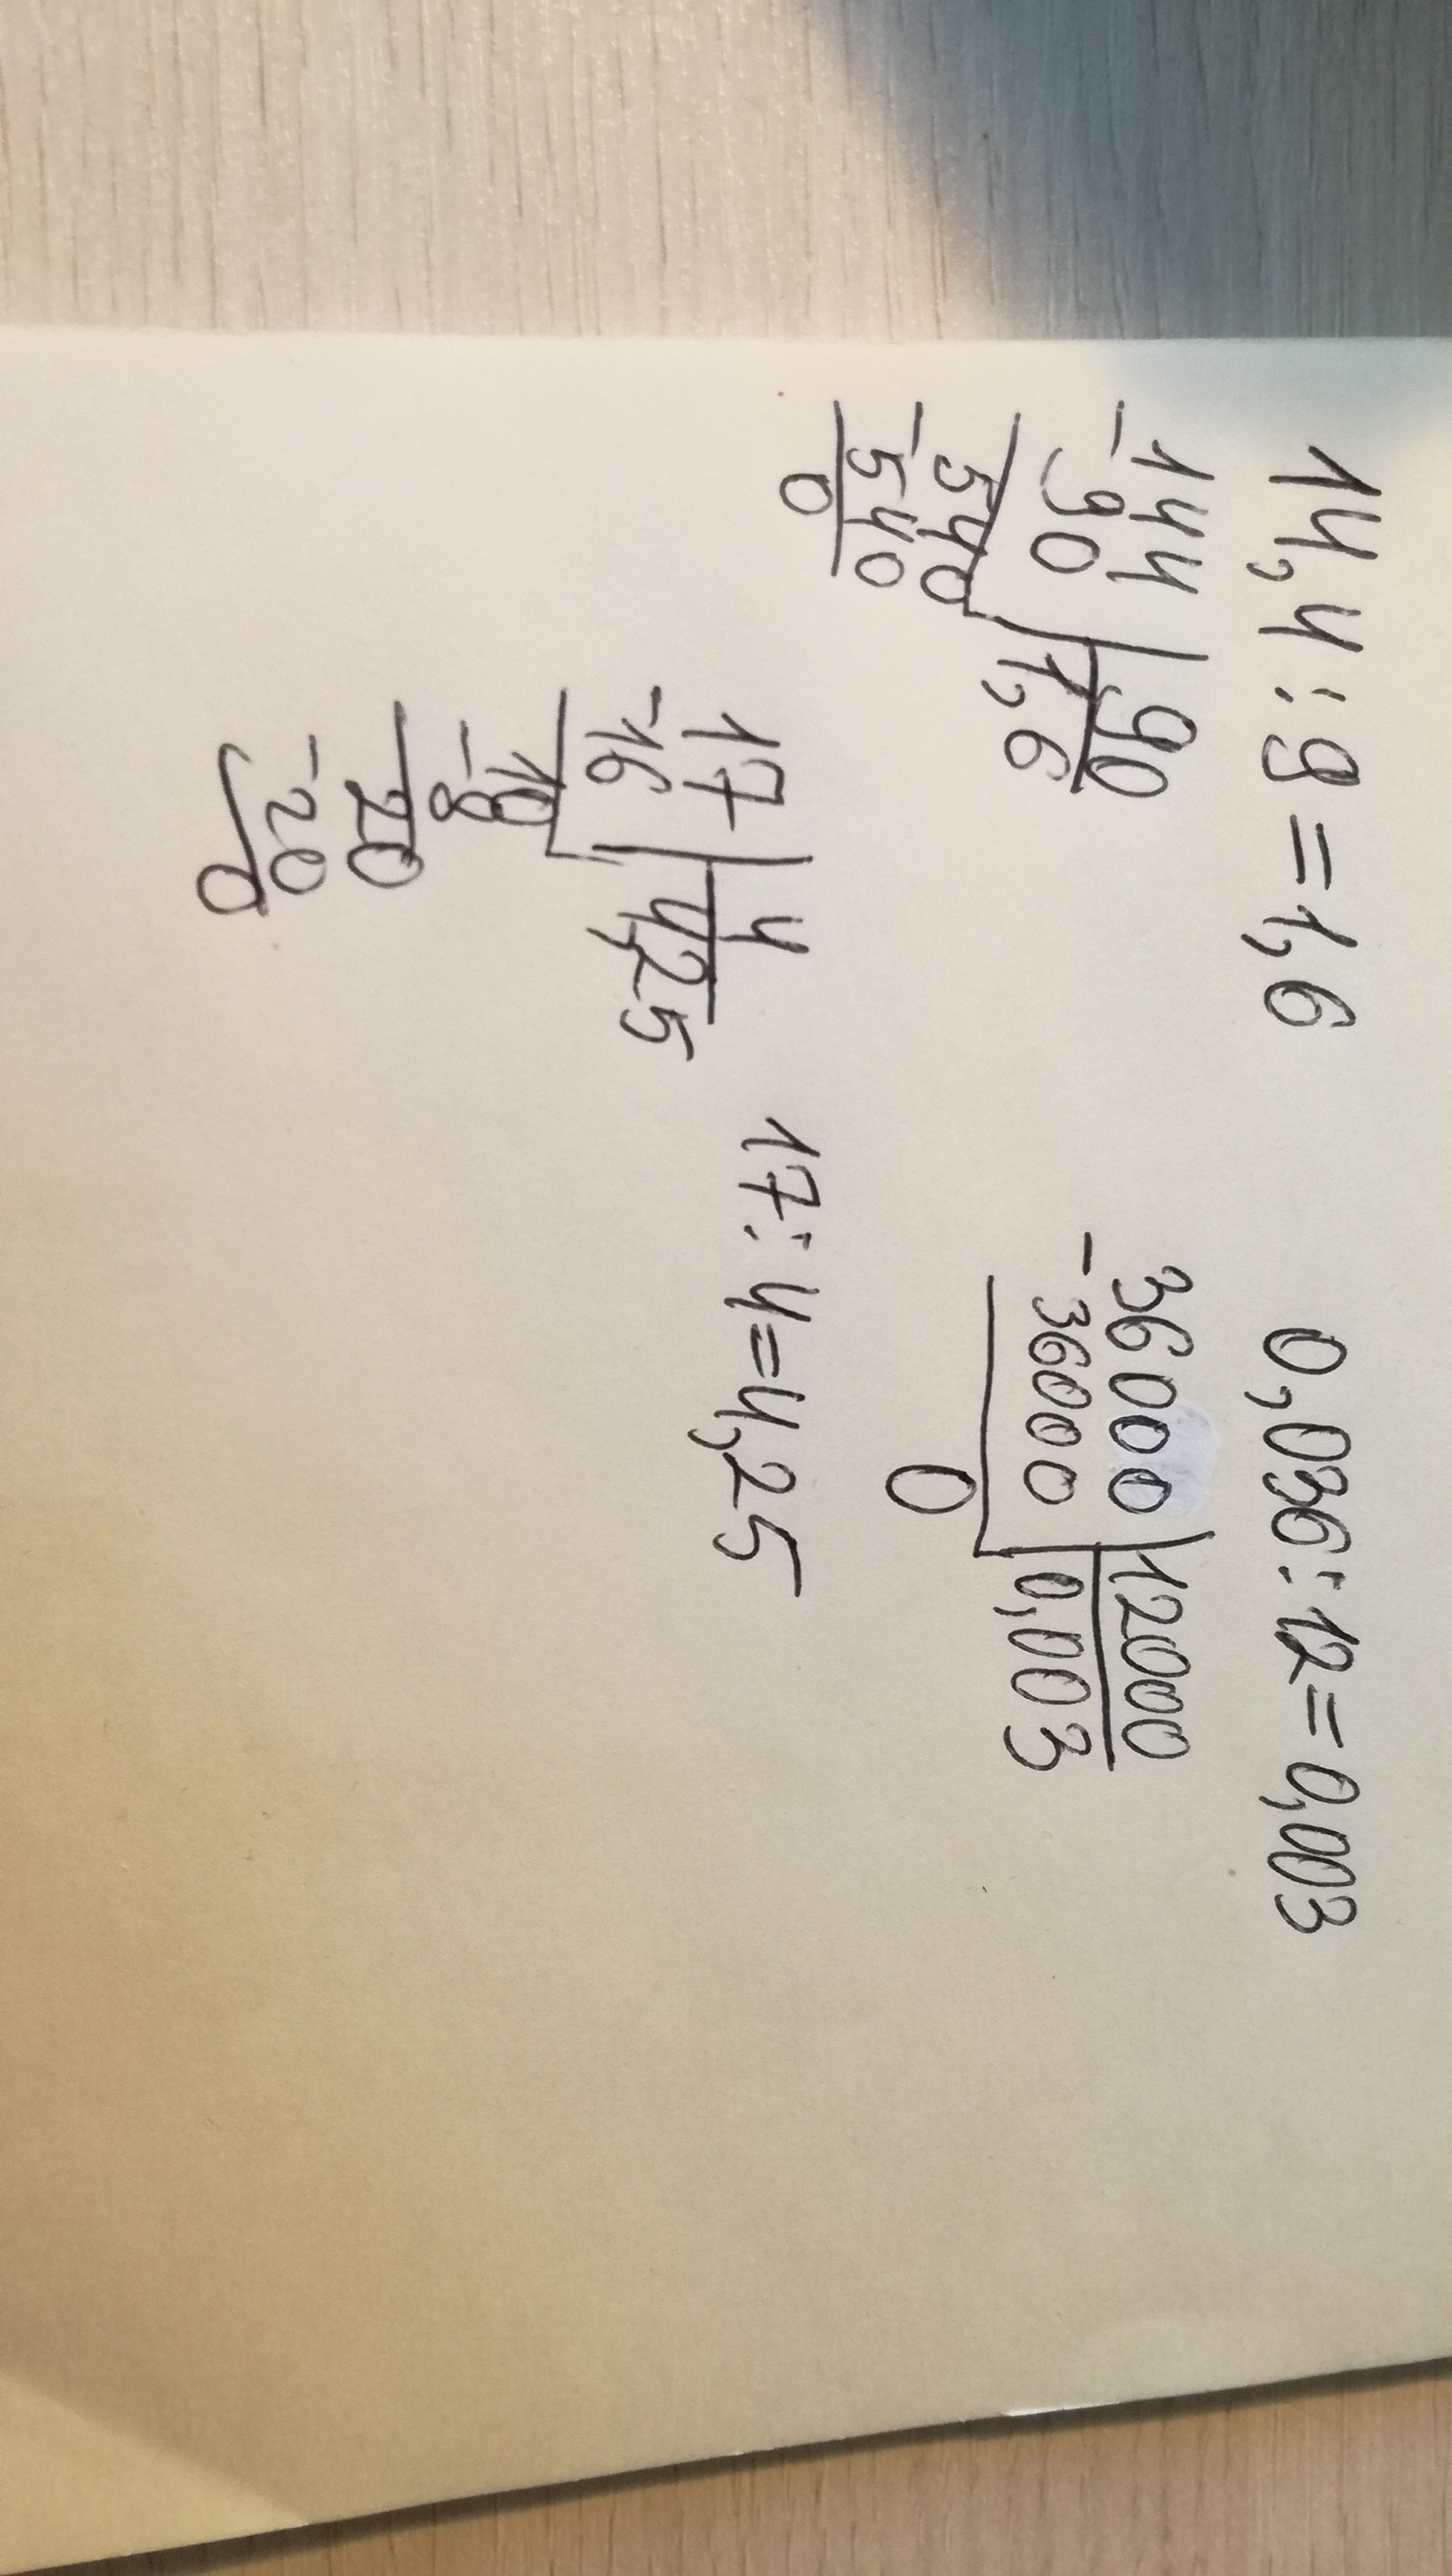 14,4 : 9 = 1,6
144 | 90
- 90 | 1,6
540
- 540
0
0,036 : 12 = 0,003
36000 | 12000
- 36000 | 0,003
0
17 | 4
- 16 | 4,25
10
- 8
20
- 20
0
17 : 4 = 4,25